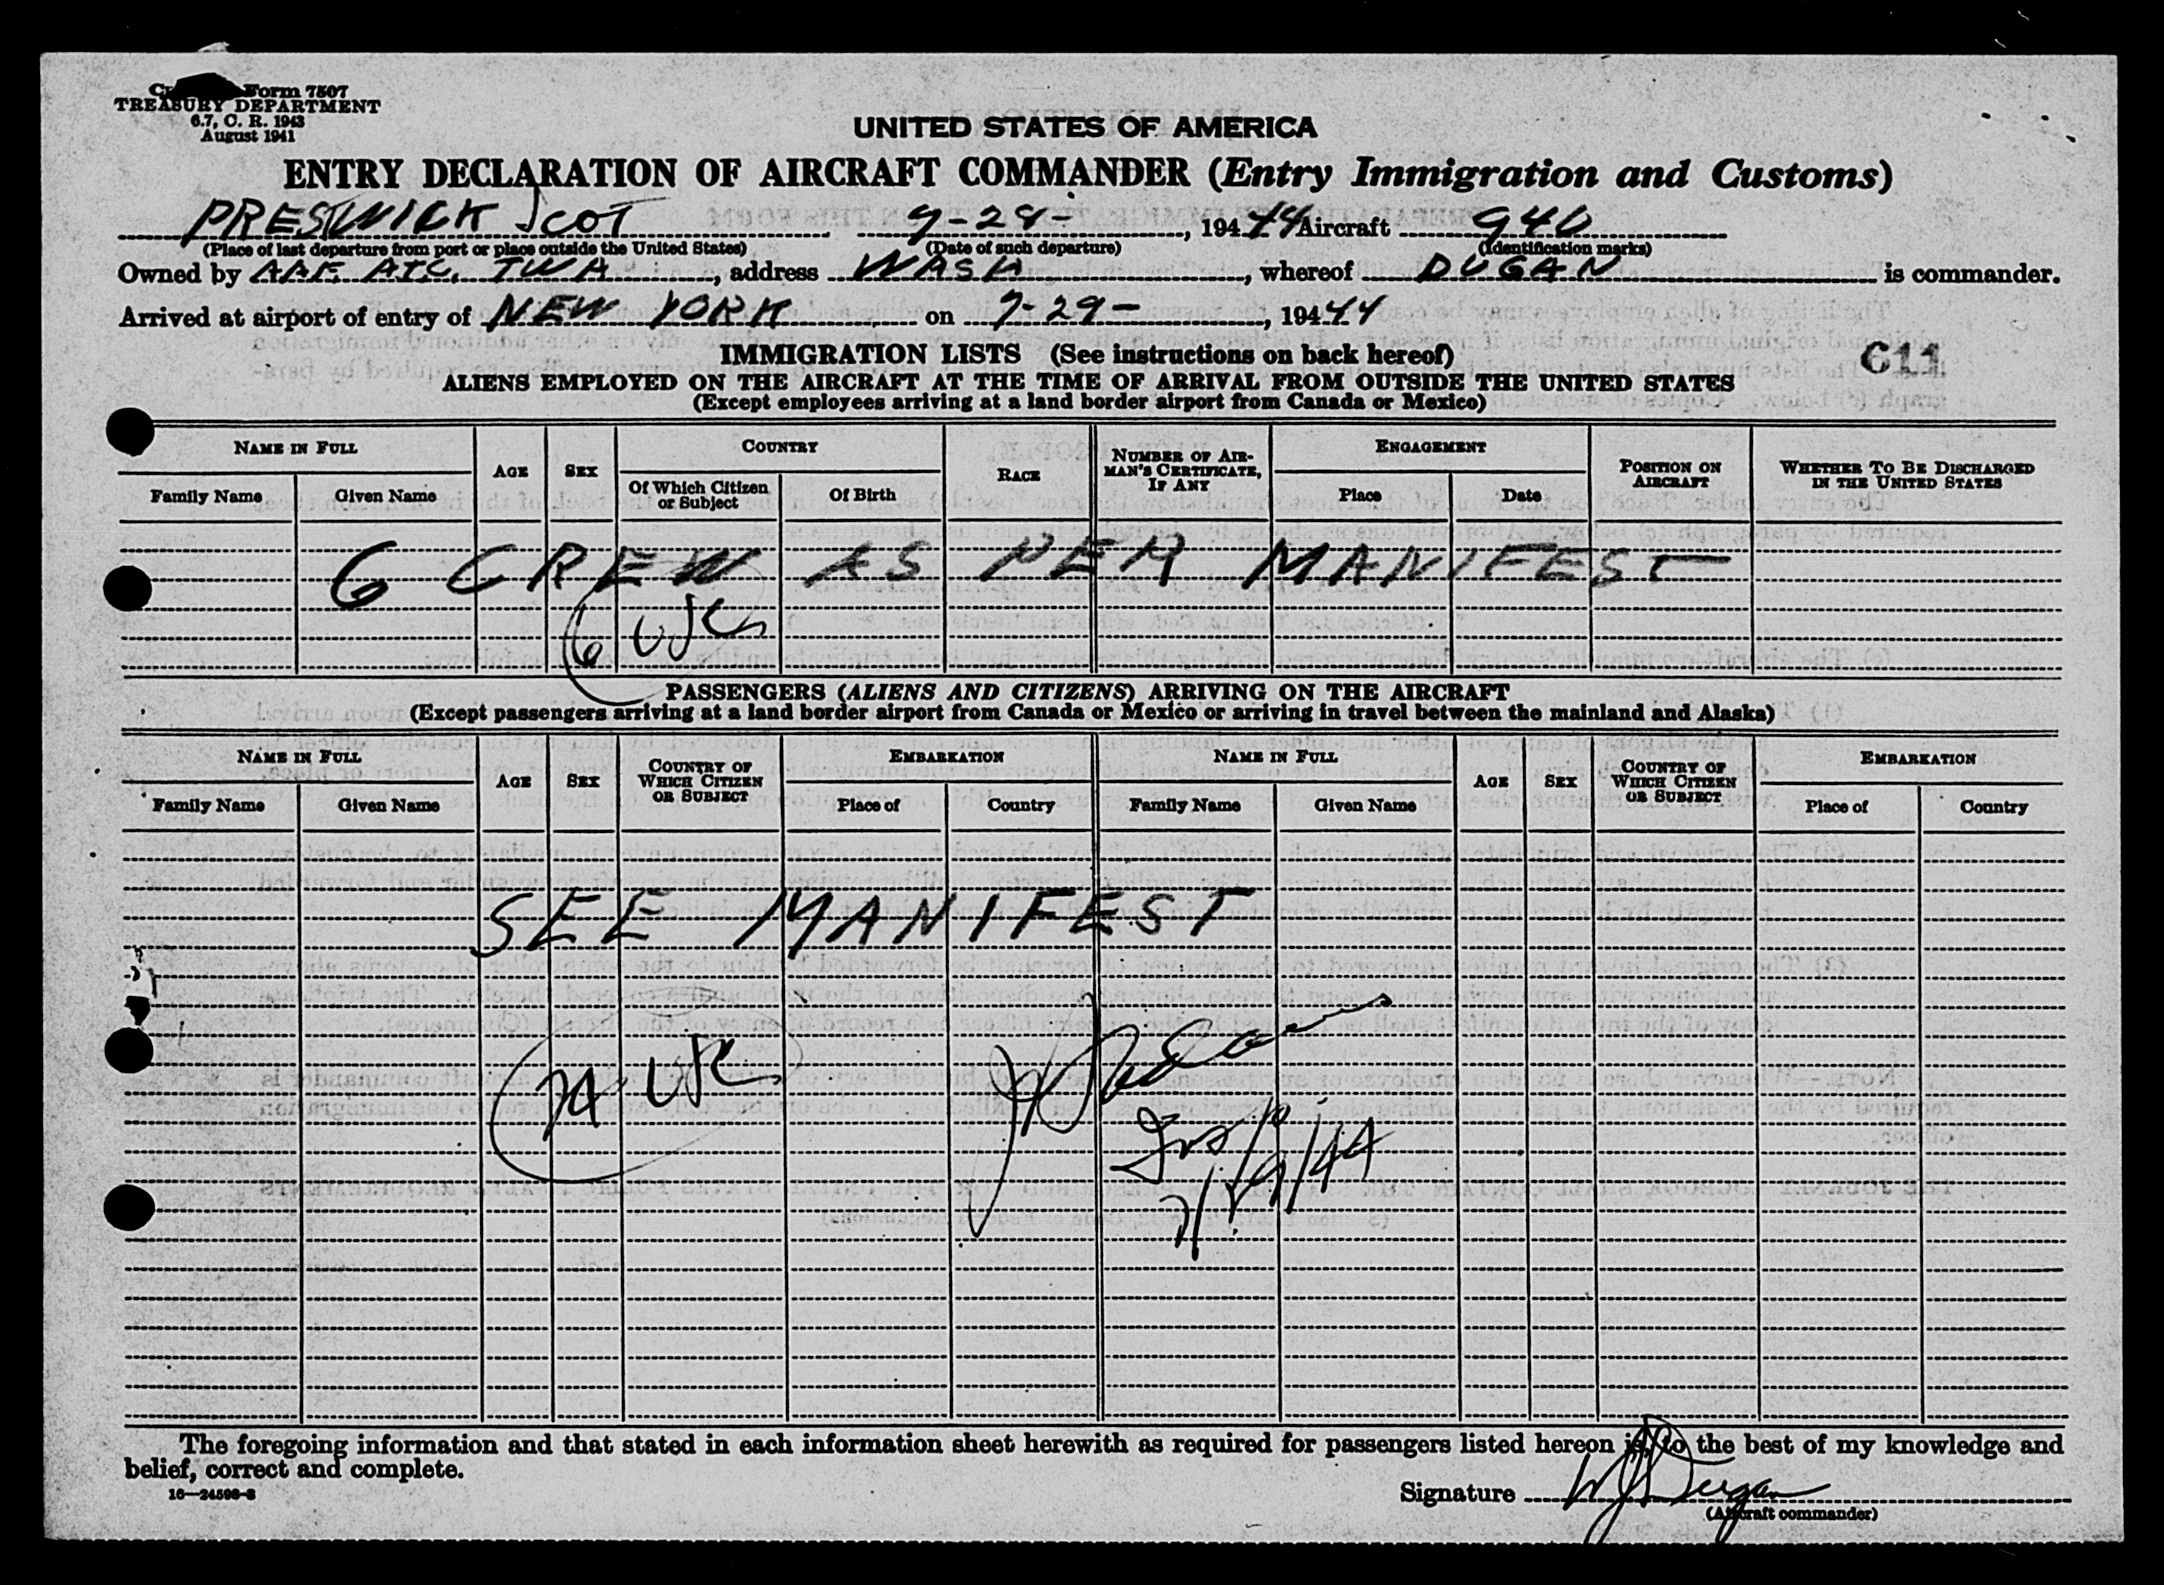 Form 7507
TREASURY DEPARTMENT
6.7, C. R. 1943
August 1941
UNITED STATES OF AMERICA
ENTRY DECLARATION OF AIRCRAFT COMMANDER (Entry Immigration and Customs)
PRESTWICK SCOT 7-28-, 1944 Aircraft 940
(Place of last departure from port or place outside the United States) (Date of such departure) (Identification marks)
Owned by AAF ATC. TWA, address WASH, whereof DUGAN is commander.
Arrived at airport of entry of NEW YORK on 7-29-, 1944
IMMIGRATION LISTS (See instructions on back hereof)
611
ALIENS EMPLOYED ON THE AIRCRAFT AT THE TIME OF ARRIVAL FROM OUTSIDE THE UNITED STATES
(Except employees arriving at a land border airport from Canada or Mexico)
NAME IN FULL AGE SEX COUNTRY RACE NUMBER OF AIRMAN'S CERTIFICATE, IF ANY ENGAGEMENT POSITION ON AIRCRAFT WHETHER TO BE DISCHARGED IN THE UNITED STATES
Family Name Given Name Of Which Citizen or Subject Of Birth Place Date
6 CREW AS PER MANIFEST
6 USC
PASSENGERS (ALIENS AND CITIZENS) ARRIVING ON THE AIRCRAFT
(Except passengers arriving at a land border airport from Canada or Mexico or arriving in travel between the mainland and Alaska)
NAME IN FULL AGE SEX COUNTRY OF WHICH CITIZEN OR SUBJECT EMBARKATION NAME IN FULL AGE SEX COUNTRY OF WHICH CITIZEN OR SUBJECT EMBARKATION
Family Name Given Name Place of Country Family Name Given Name Place of Country
SEE MANIFEST
USC
7/29/44
The foregoing information and that stated in each information sheet herewith as required for passengers listed hereon is, to the best of my knowledge and
belief, correct and complete.
16—24598-3
Signature W J Dugan
(Aircraft commander)